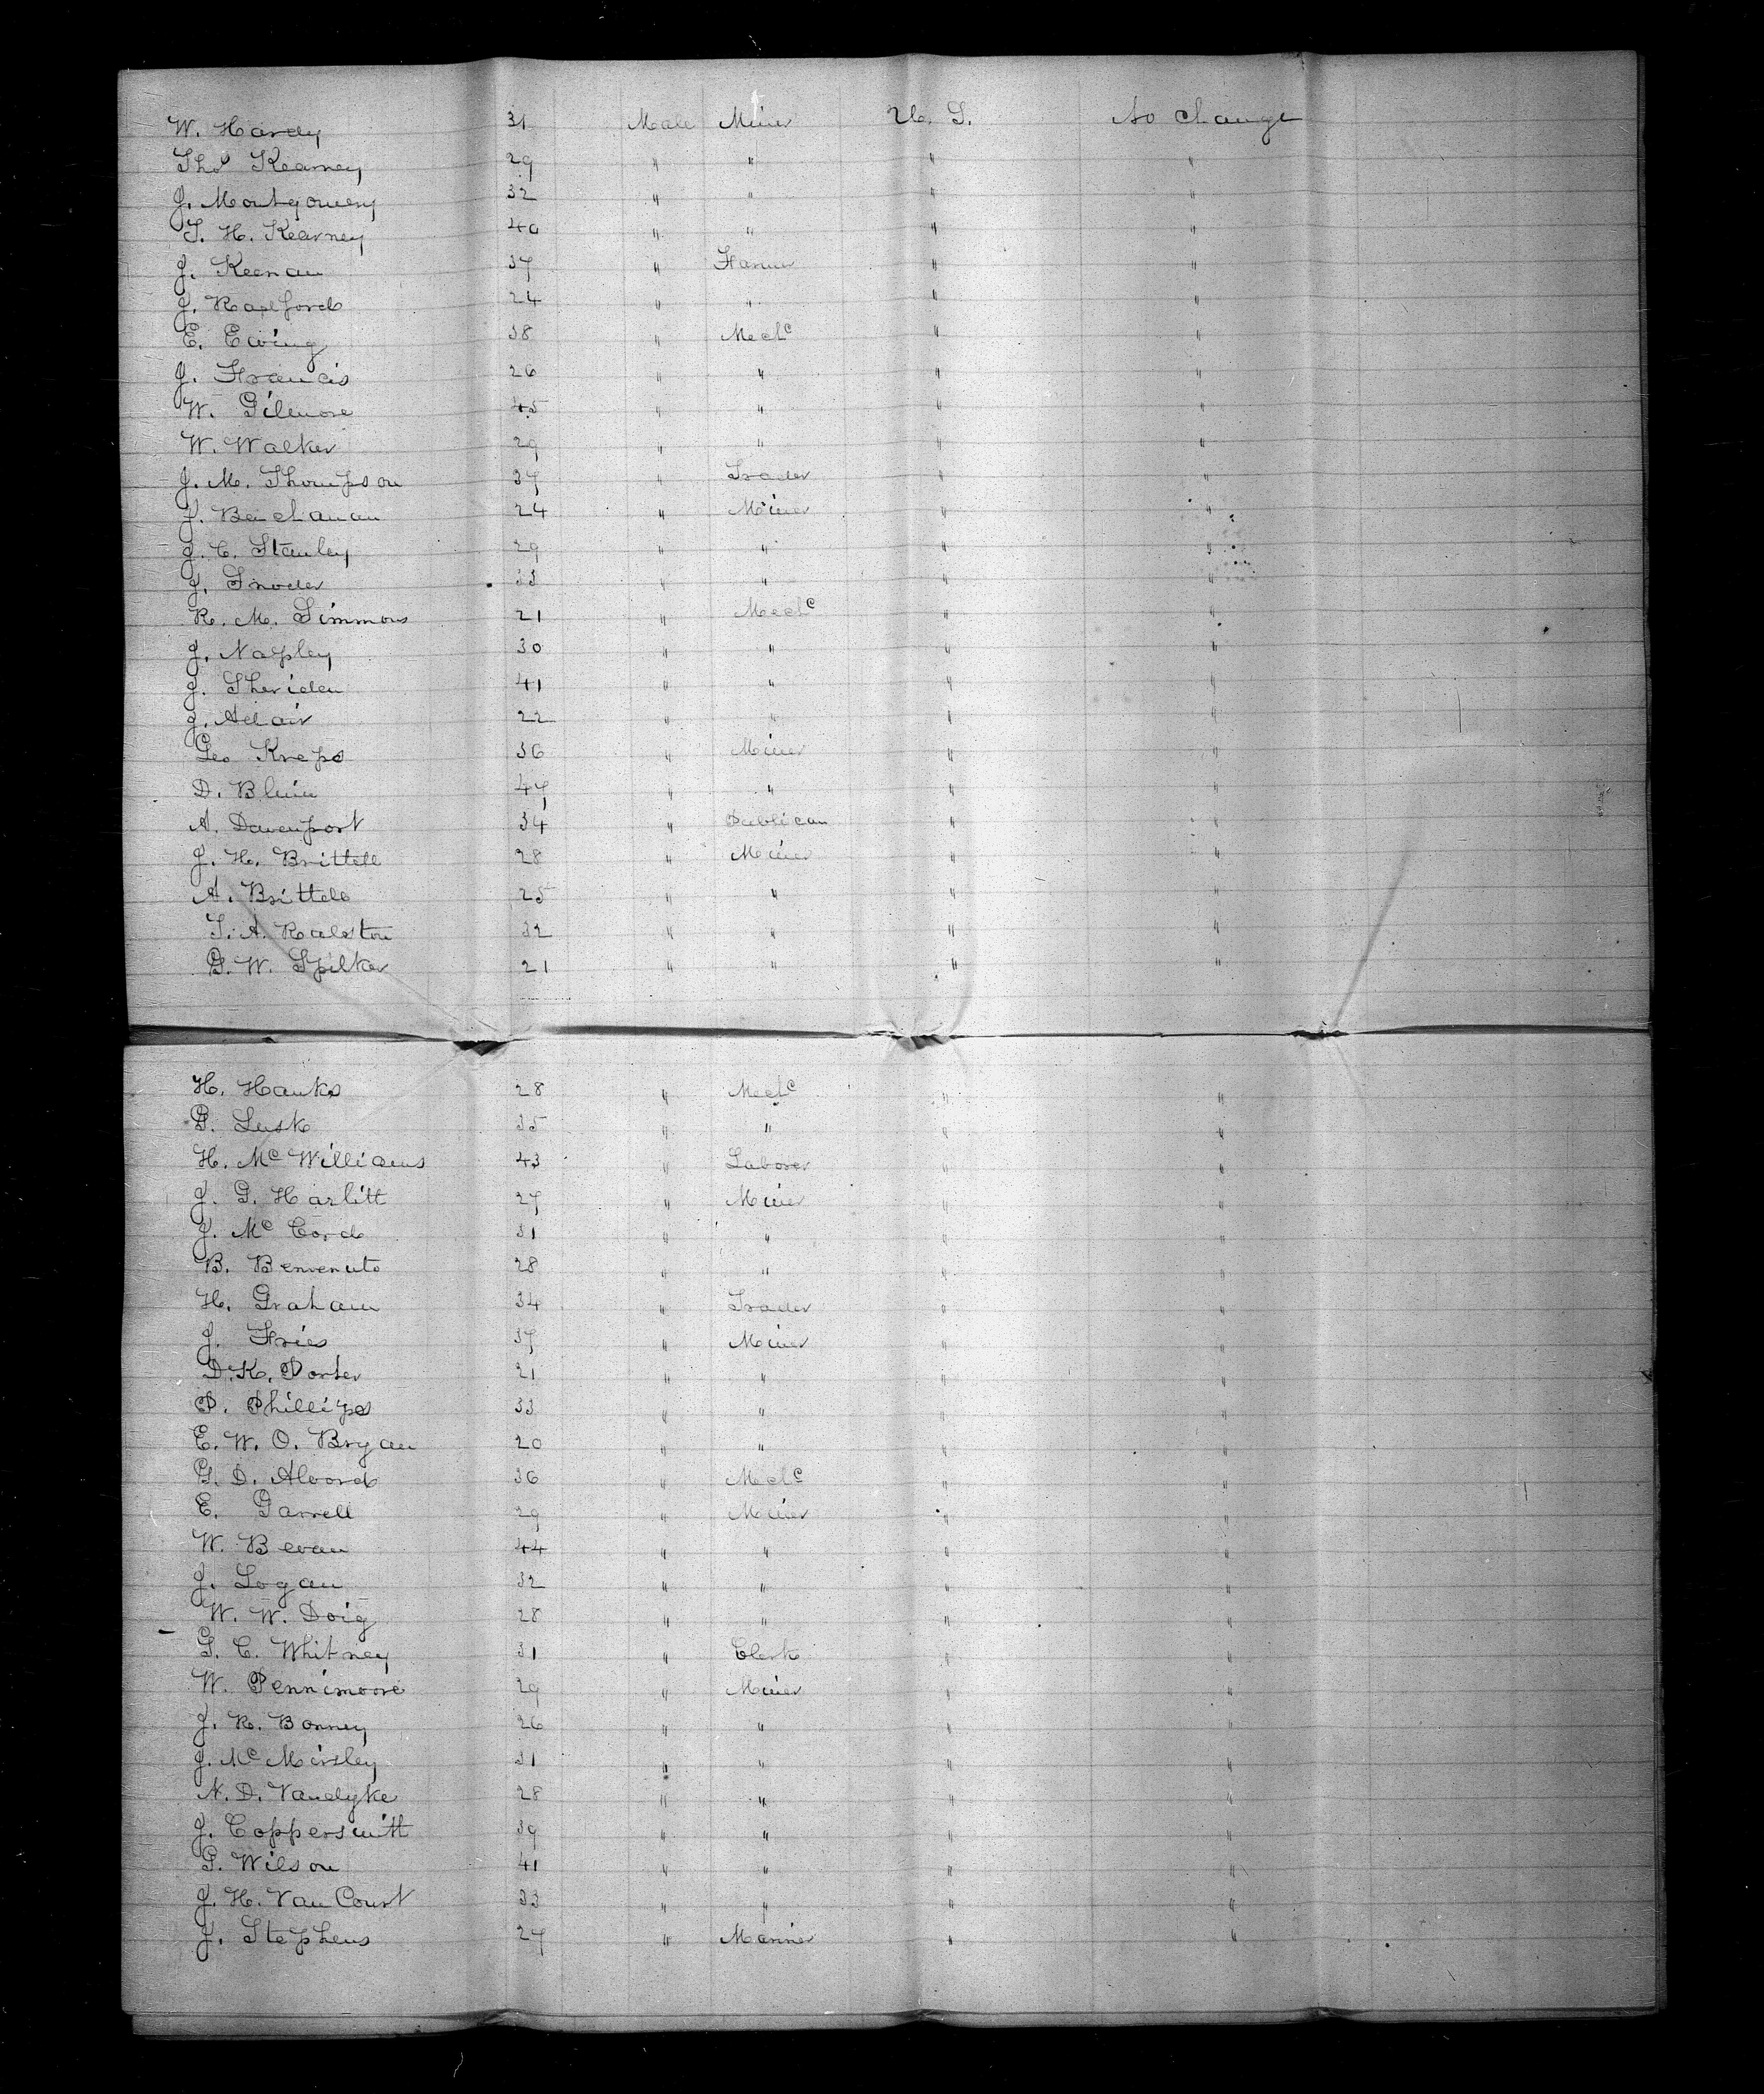 W. Hardy 31 Male Miner U. S. No change
Thos Kearney 29 " " " "
J. Montgomery 32 " " " "
T. H. Kearney 40 " " " "
J. Keenan 37 " Farmer " "
J. Raxford 24 " " " "
E. Ewing 38 " Mechc " "
J. Francis 26 " " " "
W. Gilmore 45 " " " "
W. Walker 29 " " " "
J. M. Thompson 37 " Trader " "
J. Buchanan 24 " Miner " "
J. C. Stanley 29 " " " "
J. Snoder 33 " " " "
R. M. Simmons 21 " Mechc " "
J. Napley 30 " " " "
J. Sheridan 41 " " " "
J. Adair 22 " " " "
Geo Kreps 36 " Miner " "
D. Bluin 47 " " " "
A. Davenport 34 " Publican " "
J. H. Brittell 28 " Miner " "
A. Brittell 25 " " " "
T. A. Ralston 32 " " " "
G. W. Spilker 21 " " " "
H. Hanks 28 " Mechc " "
P. Lusk 35 " " " "
H. Mc Williams 43 " Laborer " "
J. G. Hazlitt 27 " Miner " "
J. Mc Cord 31 " " " "
B. Benvenuto 28 " " " "
H. Graham 34 " Trader " "
J. Fries 37 " Miner " "
D. K. Porter 21 " " " "
P. Phillips 33 " " " "
E. W. O. Bryan 20 " " " "
G. D. Alvord 36 " Mechc " "
E. Garrell 29 " Miner " "
W. Bevan 44 " " " "
J. Logan 32 " " " "
W. W. Doig 28 " " " "
G. C. Whitney 31 " Clerk " "
W. Pennimoore 29 " Miner " "
J. R. Bonney 26 " " " "
J. Mc Mirsley 31 " " " "
N. D. Vandyke 28 " " " "
J. Coppersmitt 39 " " " "
G. Wilson 41 " " " "
J. H. Van Court 33 " " " "
J. Stephens 27 " Mariner " "